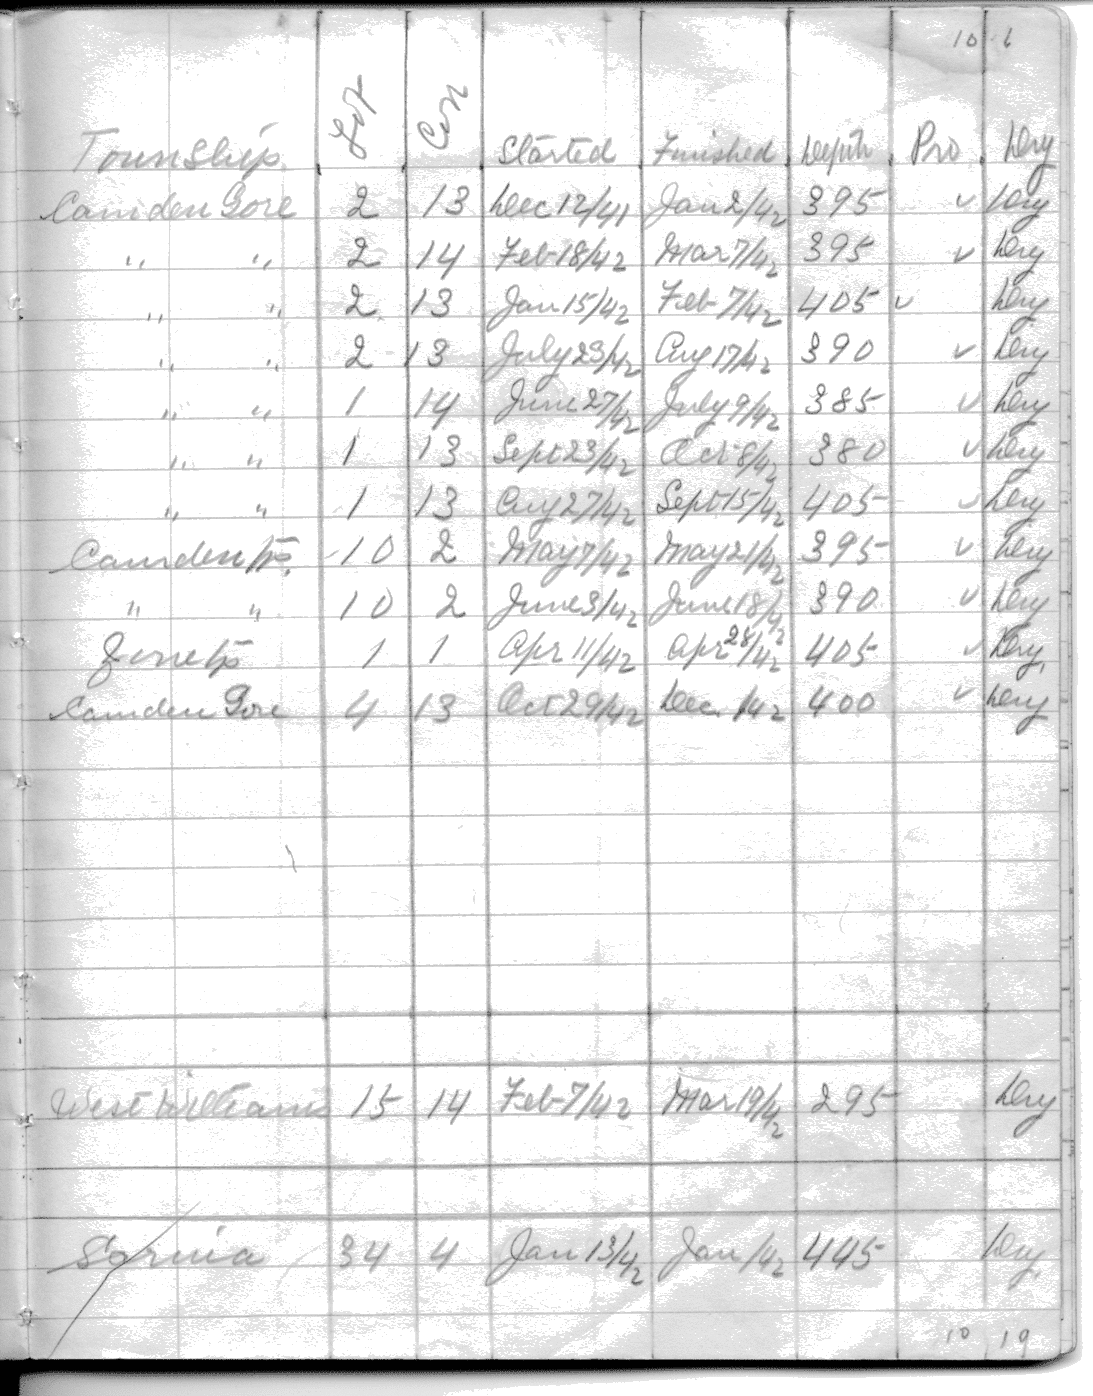 10 6
Township Lot Con Started Finished Depth Pro Dry
Camden Gore 2 13 Dec 12/41 Jan 2/42 395 ✓ Dry
" " 2 14 Feb 18/42 Mar 7/42 395 ✓ Dry
" " 2 13 Jan 15/42 Feb 7/42 405 ✓ Dry
" " 2 13 July 23/42 Aug 17/42 390 ✓ Dry
" " 1 14 June 27/42 July 9/42 385 ✓ Dry
" " 1 13 Sept 23/42 Oct 8/42 380 ✓ Dry
" " 1 13 Aug 27/42 Sept 15/42 405 ✓ Dry
Camden 10 2 May 7/42 May 21/42 395 ✓ Dry
" " 10 2 June 3/42 June 18/42 390 ✓ Dry
1 1 Apr 11/42 Apr 28/42 405 ✓ Dry.
Camden Gore 4 13 Oct 29/42 Dec. 1/42 400 ✓ Dry
West Williams 15 14 Feb 7/42 Mar 19/42 295 Dry
Sarnia 34 4 Jan 13/42 Jan /42 445 Dry.
10 19